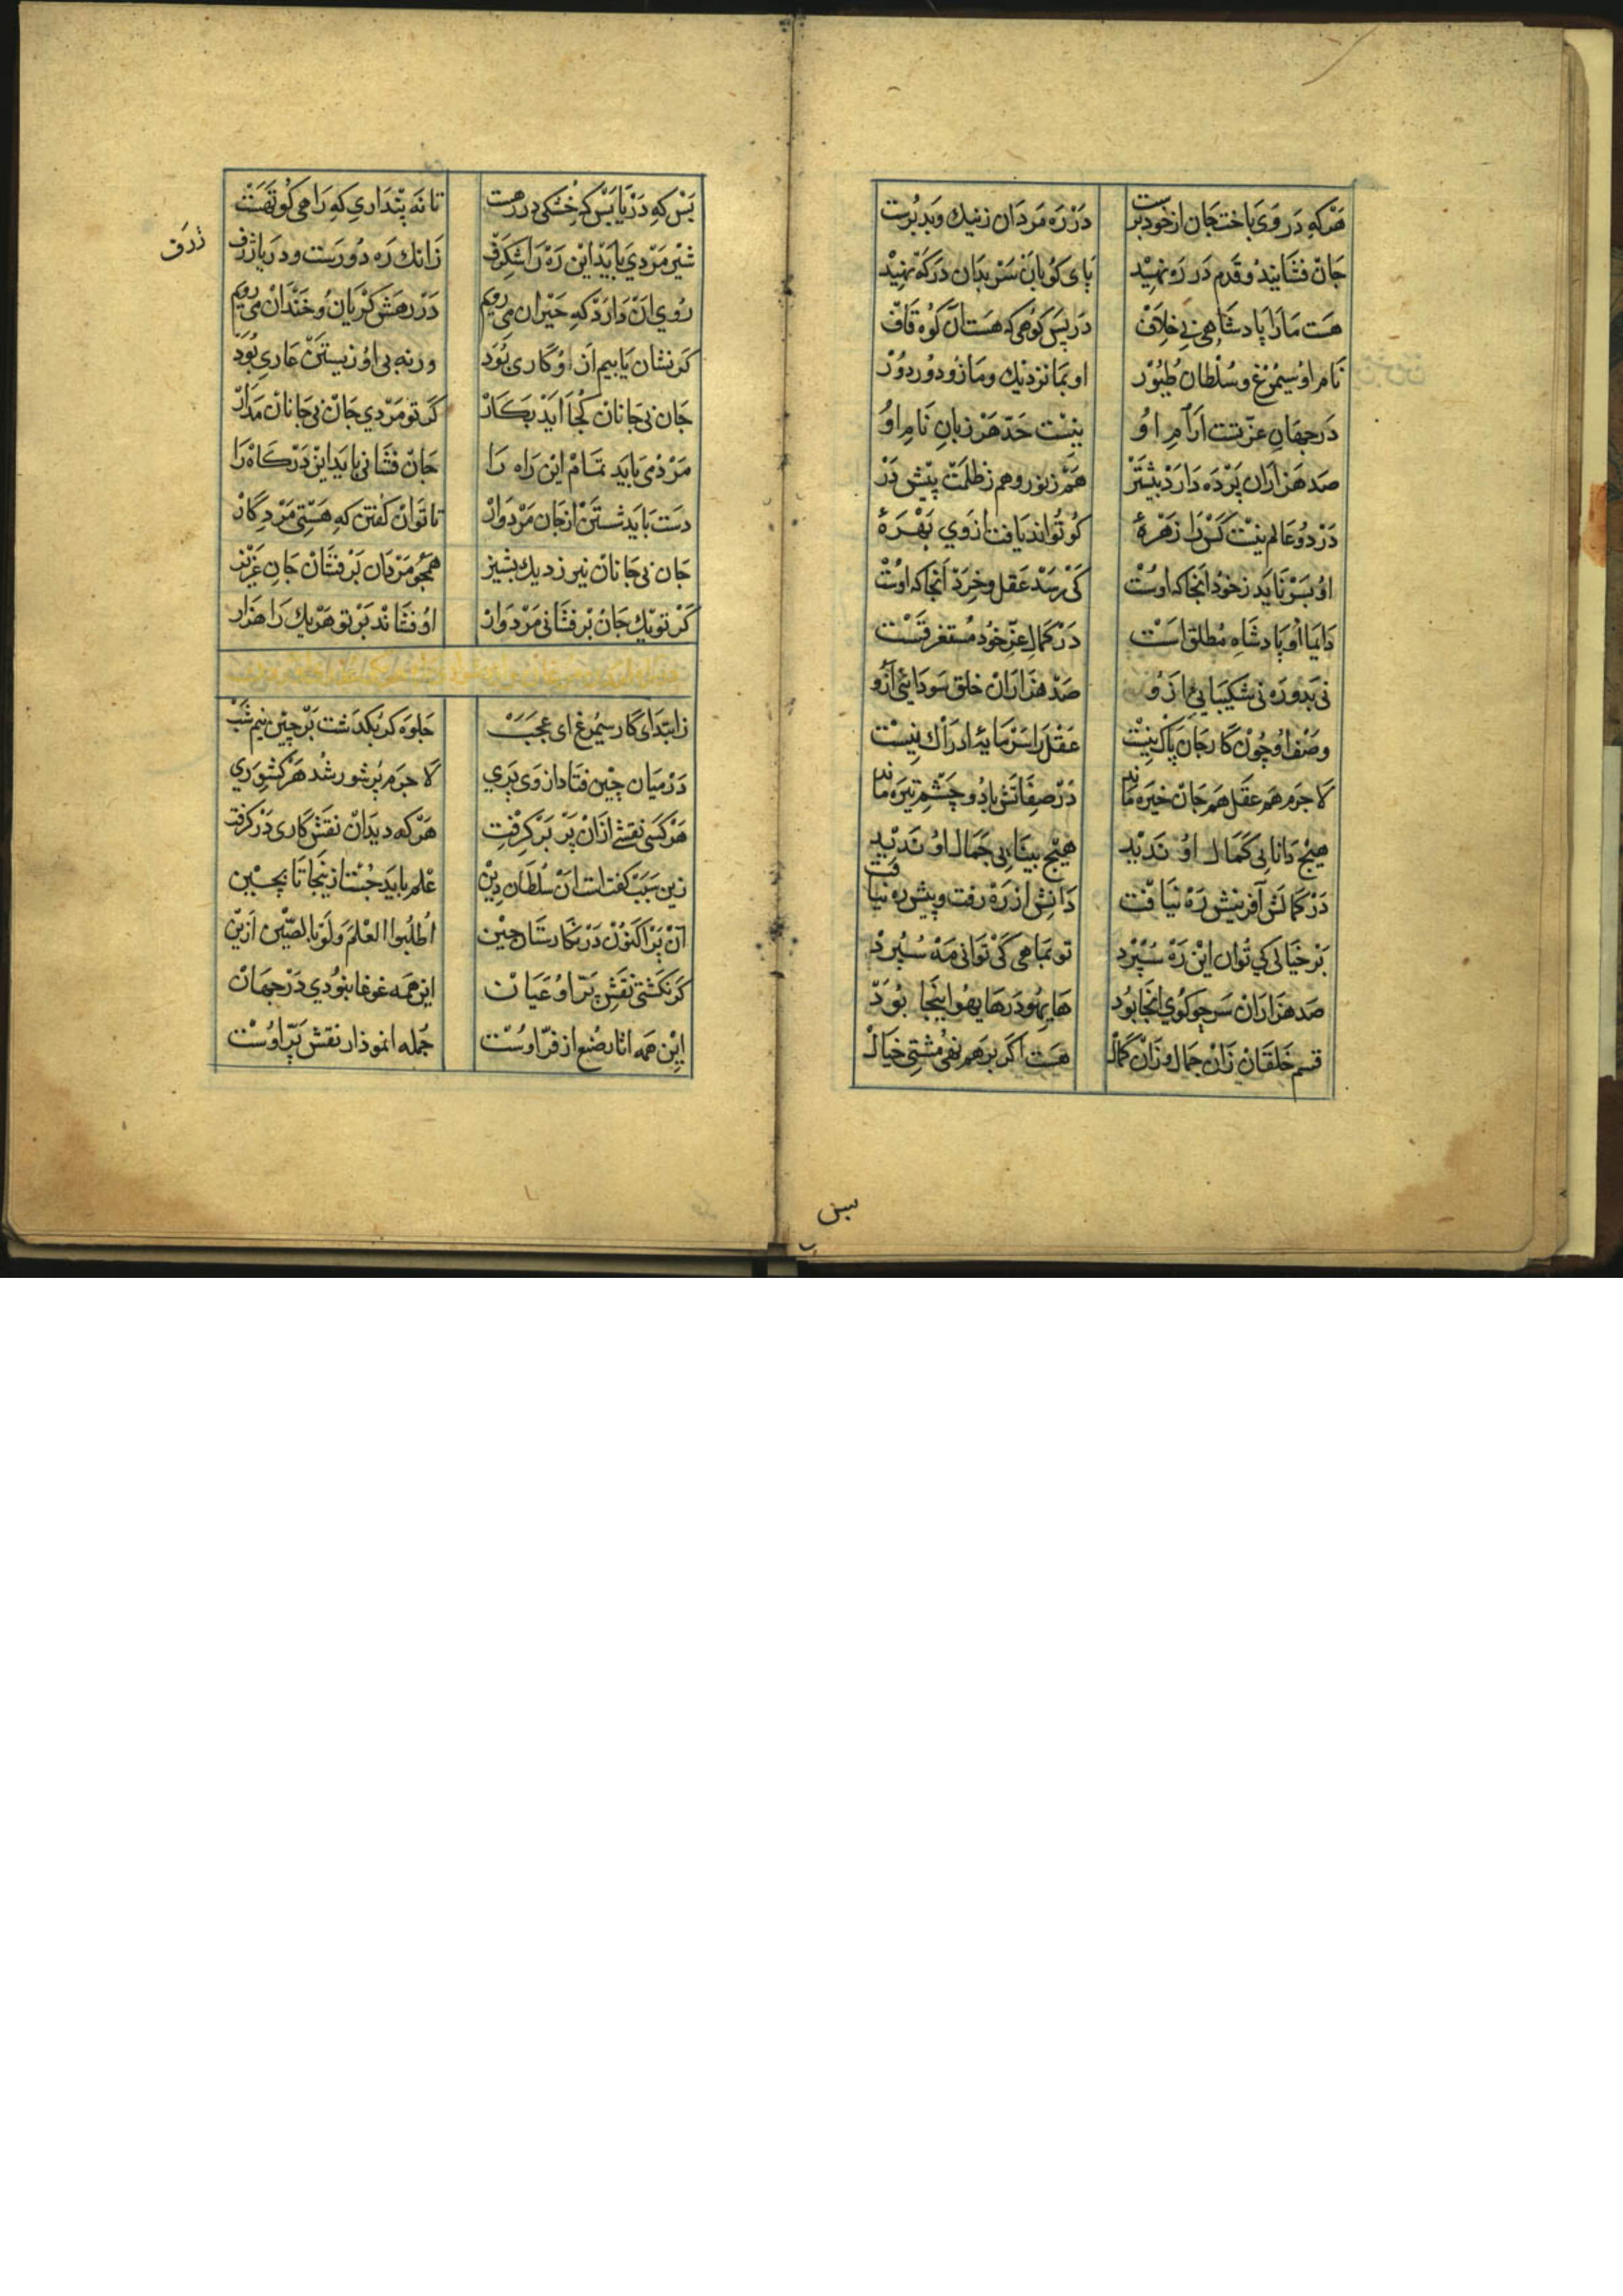 هرکه در وی باخت جان از خود برست در ره مردان ز نیک و بد برست
جان فشانید و قدم در ره نهید پای کوبان سر بدان درگه نهید
هست ما را پادشاهی بی خلاف در پس کوهی که هست آن کوه قاف
نام او سیمرغ و سلطان طیور او بما نزدیک و ما زو دور دور
در جهان عزتست آرام او نیست حد هر زبان نام او
صد هزاران پرده دارد بیشتر هم ز نور و هم ز ظلمت پیش در
در دو عالم نیست کس را زهرهٔ کو تواند یافت از وی بهرهٔ
او بسر ناید ز خود آنجا که اوست کی رسد عقل و خرد آنجا که اوست
دایما او پادشاه مطلق است در کمال عز خود مستغرقست
نی بدو ره نی شکیبایی ازو صد هزاران خلق سودائی ازو
وصف او چون کار جان پاک نیست عقل را سرمایهٔ ادراک نیست
لاجرم هم عقل هم جان خیره ماند در صفاتش با دو چشم تیره ماند
هیچ دانایی کمال او ندید هیچ بینایی جمال او ندید
در کمالش آفرینش ره نیافت دانش از ره رفت و پیش ره نیافت
بر خیالی کی توان این ره سپرد تو بماهی کی توانی مه سپرد
صد هزاران سر چو گوی آنجا بود های های و های هو اینجا بود
قسم خلقان زان جمال و زان کمال هست اگر بر هم نهی مشتی خیال
بس
بس که دریا بس که خشکی در رهست تا نه پنداری که راهی کوتهست
شیر مردی باید این ره را شگرف زانک ره دورست و دریا ژرف
ژرف
روی آن دارد که حیران می رویم در رهش گریان و خندان می رویم
گر نشان یابیم از او کاری بود ورنه بی او زیستن عاری بود
جان بی جانان کجا آید بکار گر تو مردی جان بی جانان مدار
مردمی باید تمام این راه را جان فشانی باید این درگاه را
دست باید شستن از جان مردوار تا توان گفتن که هستی مرد کار
جان بی جانان نیرزد یک پشیز همچو مردان بر فشان جان عزیز
گر تو یک جان بر فشانی مردوار او فشاند بر تو هر یک را هزار
ز ابتدای کار سیمرغ ای عجب جلوه گر بگذشت بر چین نیم شب
در میان چین فتاد از وی پری لاجرم پر شور شد هر کشوری
هر کسی نقشی از آن پر بر گرفت هر که دید آن نقش کاری در گرفت
زین سبب گفتست آن سلطان دین علم باید جست از ینجا تا بچین
آن پر اکنون در نگارستان چین اطلبوا العلم ولو بالصین ازین
گر نگشتی نقش پر او عیان این همه غوغا نبودی در جهان
این همه آثار صنع از فر اوست جمله انموذار نقش پر اوست